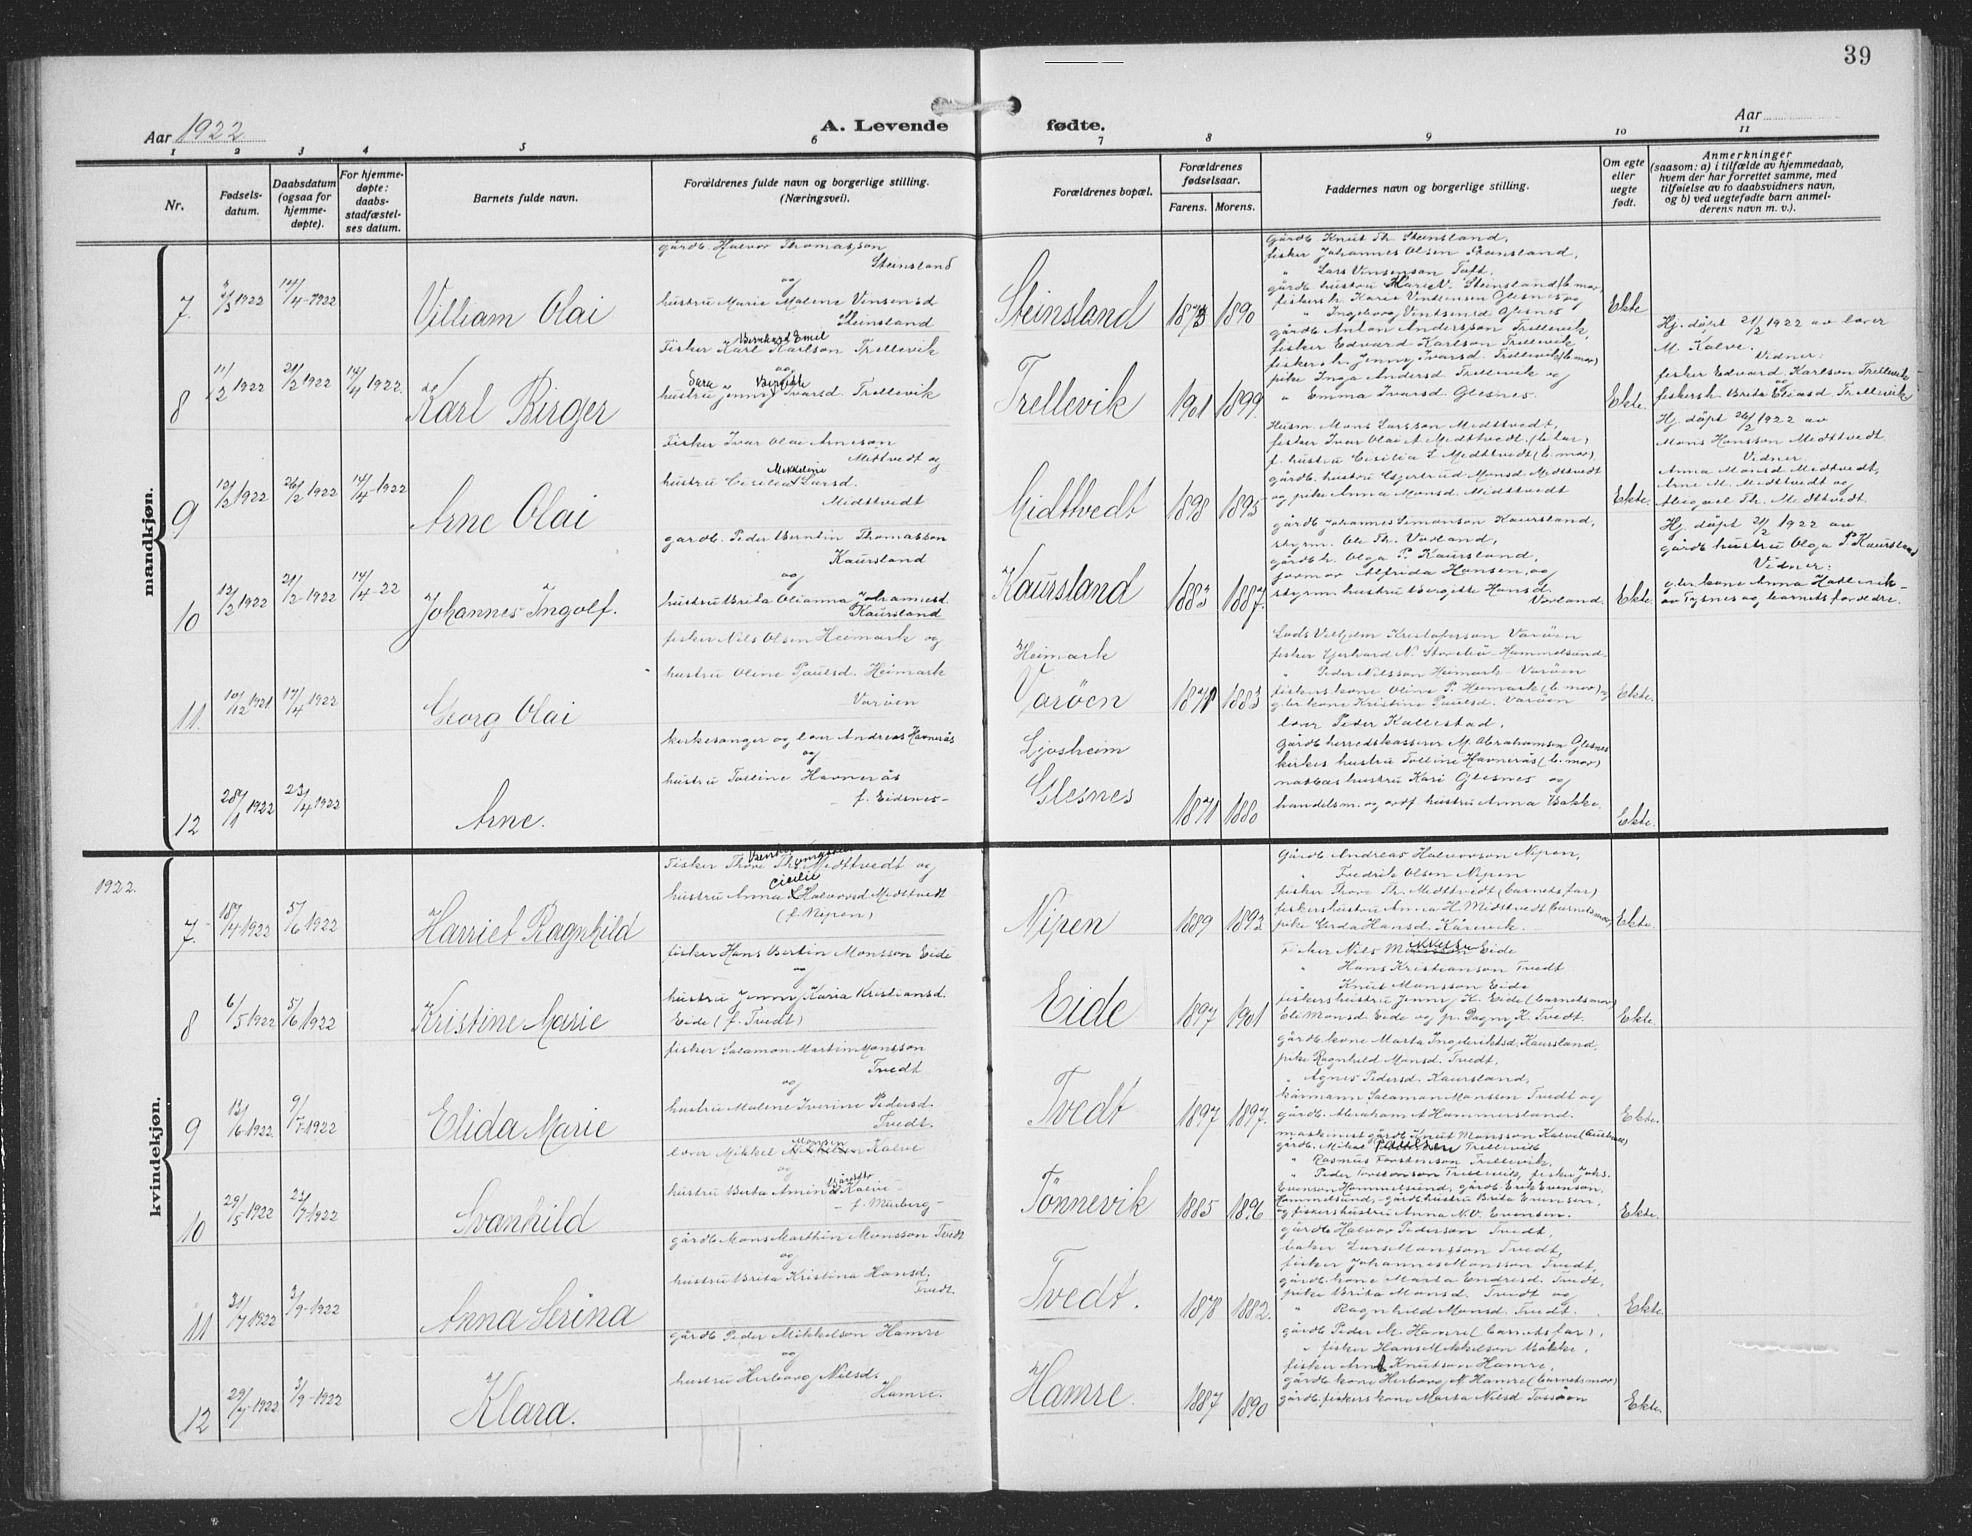 39
Aar 1922
A. Levende
fødte.
Aar
1 2 3 4 5 6 7 8 9 10 11
Nr.
Fødsels-
datum.
Daabsdatum
(ogsaa for
hjemme-
døpte).
For hjemme-
døpte:
daabs-
stadfæstel-
ses datum.
Barnets fulde navn.
Forældrenes fulde navn og borgerlige stilling.
(Næringsvei).
Forældrenes bopæl.
Forældrenes
fødselsaar.
Farens. Morens.
Faddernes navn og borgerlige stilling.
Om egte
eller
uegte
født.
Anmerkninger
(saasom: a) i tilfælde av hjemmedaab,
hvem der har forrettet samme, med
tilføielse av to daabsvidners navn,
og b) ved uegtefødte barn anmel-
derens navn m. v.).
mandkjøn.
7
2/3 1922
17/4-1922
Villiam Olai
gårdb. Halvor Thomasson
Steinsland
og
hustru Marie Malene Vinsensd
Steinsland
Steinsland
1873 1890
gårdb. Knut Th. Steinsland,
fisker Johannes Olsen Steinsland,
" Lars Vinsenson Toft.
gårdb hustru Marie V. Steinsland (b. mor)
fiskerh. Karie Vintsensen Glesnes og
" Ingeborg Vintsensd Glesnes
Ekte
8
11/2 1922
21/2 1922
17/4 1922.
Karl Birger
Bernhard Emil
Fisker Karl Karlson Trellevik
og
Sara Bergitte
hustru Jenny Ivarsd. Trellevik
Trellevik
1901 1899.
gårdb Anton Andersson Trellevik,
fisker Edvard Karlson Trellevik,
fiskerh. Jenny Ivarsd. Trellevik (b. mor)
pike Inga Andersd Trellevik og
" Emma Ivarsd. Glesnes.
Ekte.
Hj. döpt 21/2 1922 av lærer
M. Kalve.
Vidner:
fisker Edvard Karlson Trellevik
og
fiskersh. Brita Eliasd Trellevik
9
12/2 1922
26/2 1922
17/4-1922
Arne Olai
Fisker Ivar Olai Arneson
Mittvedt og
Mekkeline
hustru Cicilia Larsd.
Midttvedt
Midttvedt
1898 1895
Husm. Mons Larsson Midttvedt,
fisker Ivar Olai A Midttvedt (b. far)
f. hustru Cisilia L Midttvedt (b. mor)
gårdb. hustru Gjertrud Monsd Midttvedt
og pike Anna Monsd Midttvedt
Ekte.
Hj döpt 26/2 1922 av
Mons Hansson Midttvedt.
Vidner.
Anna Monsd Midttvedt,
Arne M. Midttvedt og
Abigael Th. Midttvedt.
10
12/2 1922
21/2-1922
17/4-22
Johannes Ingolf.
gardb. Peder Berntin Thomasson
Kaursland
og
hustru Brita Olianna Johannesd.
Kaursland
Kaursland
1883 1887.
gårdb Johannes Simonson Kaursland,
styrm. Ole Th. Vorland,
gårdb h. Olga P. Kaursland,
jormor Alfrida Hansen, og
styrm. hustru Bergitte Hansd.
Vorland.
Ekte.
Hj. döpt 21/2 1922 av
gårdb hustru Olga P Kaursland
Vidner:
gbr. kone Anna Hatlevik
av Tysnes og barnets forældre.
11.
10/12 1921.
17/4 1922
Georg Olai
fisker Nils Olsen Heimark og
hustru Oline Paulsd. Heimark
Varöen
Heimark
Varöen
1878 1883
Lods Vilhelm Kristofferson Varöen
fisker Gerhard N. Storebö-Hummelsund
" Peder Nilsson Heimark-Varöen
fiskerskone Oline P. Heimark (b. mor) og
gbr kone Kristine Paulsd. Varöen
Ekte.
12
28/1 1922
23/4 1922
Arne.
kirkesanger og lærer Andreas Havnerås
og
hustru Tolline Havnerås
- f. Eidsnes-
Ljosheim
Glesnes
1871 1880
lærer Peder Kallestad,
Gårdb herredskasserer M. Abrahamsen Glesnes
kirkes hustru Tolline Havnerås (b. mor)
matbas hustru Kari Glesnes og
handelsm. og ordf. hustru Anna Bakke.
Ekte.
1922.
kvindekjøn.
7.
18/4-1922
5/6 1922
Harriet Ragnhild
Fisker Thore Th. Midttvedt og
Cicilie
hustru Anna Halvorsd Midttvedt
(f. Nipen)
Nipen
1889 1893
Gårdb. Andreas Halvorson Nipen,
" Fredrik Olsen Nipen
fisker Thore Th. Midttvedt (barnets far)
fiskershustru Anna H. Midttvedt (barnets mor)
pike Gerda Hansd. Kårevik.
Ekte.
8
6/5 1922
5/6 1922
Kristine Marie
fisker Hans Bertin Monsson Eide
og
hustru Jenny Karia Kristiansd.
Eide (f. Tvedt)
Eide
1897 1901
Fisker Nils Monsson Eide
" Hans Kristianson Tvedt
" Knut Monsson Eide
fiskershustru Jenny K. Eide (barnets mor)
Eli Monsd. Eide og p. Dagny K. Tvedt.
Ekte.
9
13/6 1922.
9/7-1922
Elida Marie
fisker Salamon Martin Monsson
Tvedt
og
hustru Malene Iverine Pedersd.
Tvedt.
Tvedt
1897 1897.
gårdb kone Marta Ingebriktsd. Kaursland,
pike Ragnhild Monsd. Tvedt,
" Agnes Pedersd. Kaursland,
kårmann Salamon Monssen Tvedt og
gårdb. Abraham A Hammersland.
Ekte.
10
29/5 1922
23/7-1922
Svanhild
Monsen
lærer Mikkel Mikkelsen Kalve
og
hustru Berta Amind Kalve
- f. Murberg-
Tönnevik
1885 1896
maskinist gårdb Knut Monsson Kalve
gårdb. Mikal Paulsen Trellevik
" Rasmus Torstenson Trellevik,
" Peder Torstenson Trellevik, fisker Johs.
Evenson Hammelsund, gårdb. Erik Evenson,
Hammelsund,- gårdb hustru Brita Evensen,
og fiskershustru Anna N.V. Evensen.
Ekte.
11
31/7 1922
3/9-1922
Anna Serina
gårdb Mons Marthin Monsson Tvedt
og
hustru Brita Kristina Hansd.
Tvedt.
Tvedt.
1878 1882.
gårdb Halvor Pederson Tvedt,
baker Lars Monsson Tvedt,
fisker Johannes Monsson Tvedt,
gårdb. kone Marta Endresd. Tvedt,
pike Brita Monsd. Tvedt og
" Ragnhild Monsd. Tvedt.
Ekte.
12
29/7-1922
3/9-1922
Klara.
gårdb Peder Mikkelson Hamre
og
hustru Herborg Nilsd.
Hamre.
Hamre.
1887 1890
gårdb Peder M. Hamre (barnets far),
" fisker Hans Mikkelsen Bakke,
fisker Arne Knutson Hamre,
gårdb kone Herborg N. Hamre (barnets mor)
gårdb. fiskers kone Marta Nilsd Tossöen
Ekte.